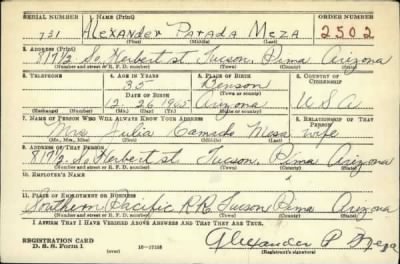 SERIAL NUMBER 1. NAME (Print) ORDER NUMBER
731 ALEXANDER PARADA MEZA 2502
(First) (Middle) (Last)
2. ADDRESS (Print)
817½ So Herbert st. Tucson, Pima Arizona
(Number and street or R. F. D. number) (Town) (County) (State)
3. TELEPHONE 4. AGE IN YEARS 5. PLACE OF BIRTH 6. COUNTRY OF CITIZENSHIP
35 Benson
DATE OF BIRTH (Town or county)
12 26 1905 Arizona USA
(Exchange) (Number) (Mo.) (Day) (Yr.) (State or country)
7. NAME OF PERSON WHO WILL ALWAYS KNOW YOUR ADDRESS 8. RELATIONSHIP OF THAT PERSON
Mrs Julia Meza wife
(Mr., Mrs., Miss) (First) (Middle) (Last)
9. ADDRESS OF THAT PERSON
817½ So Herbert st. Tucson, Pima Arizona
(Number and street or R. F. D. number) (Town) (County) (State)
10. EMPLOYER'S NAME
11. PLACE OF EMPLOYMENT OR BUSINESS
Southern Pacific RR Tucson Pima Arizona
(Number and street or R. F. D. number) (Town) (County) (State)
I AFFIRM THAT I HAVE VERIFIED ABOVE ANSWERS AND THAT THEY ARE TRUE.
REGISTRATION CARD
D. S. S. Form 1 16—17105 Alexander P Meza
(Registrant's signature)